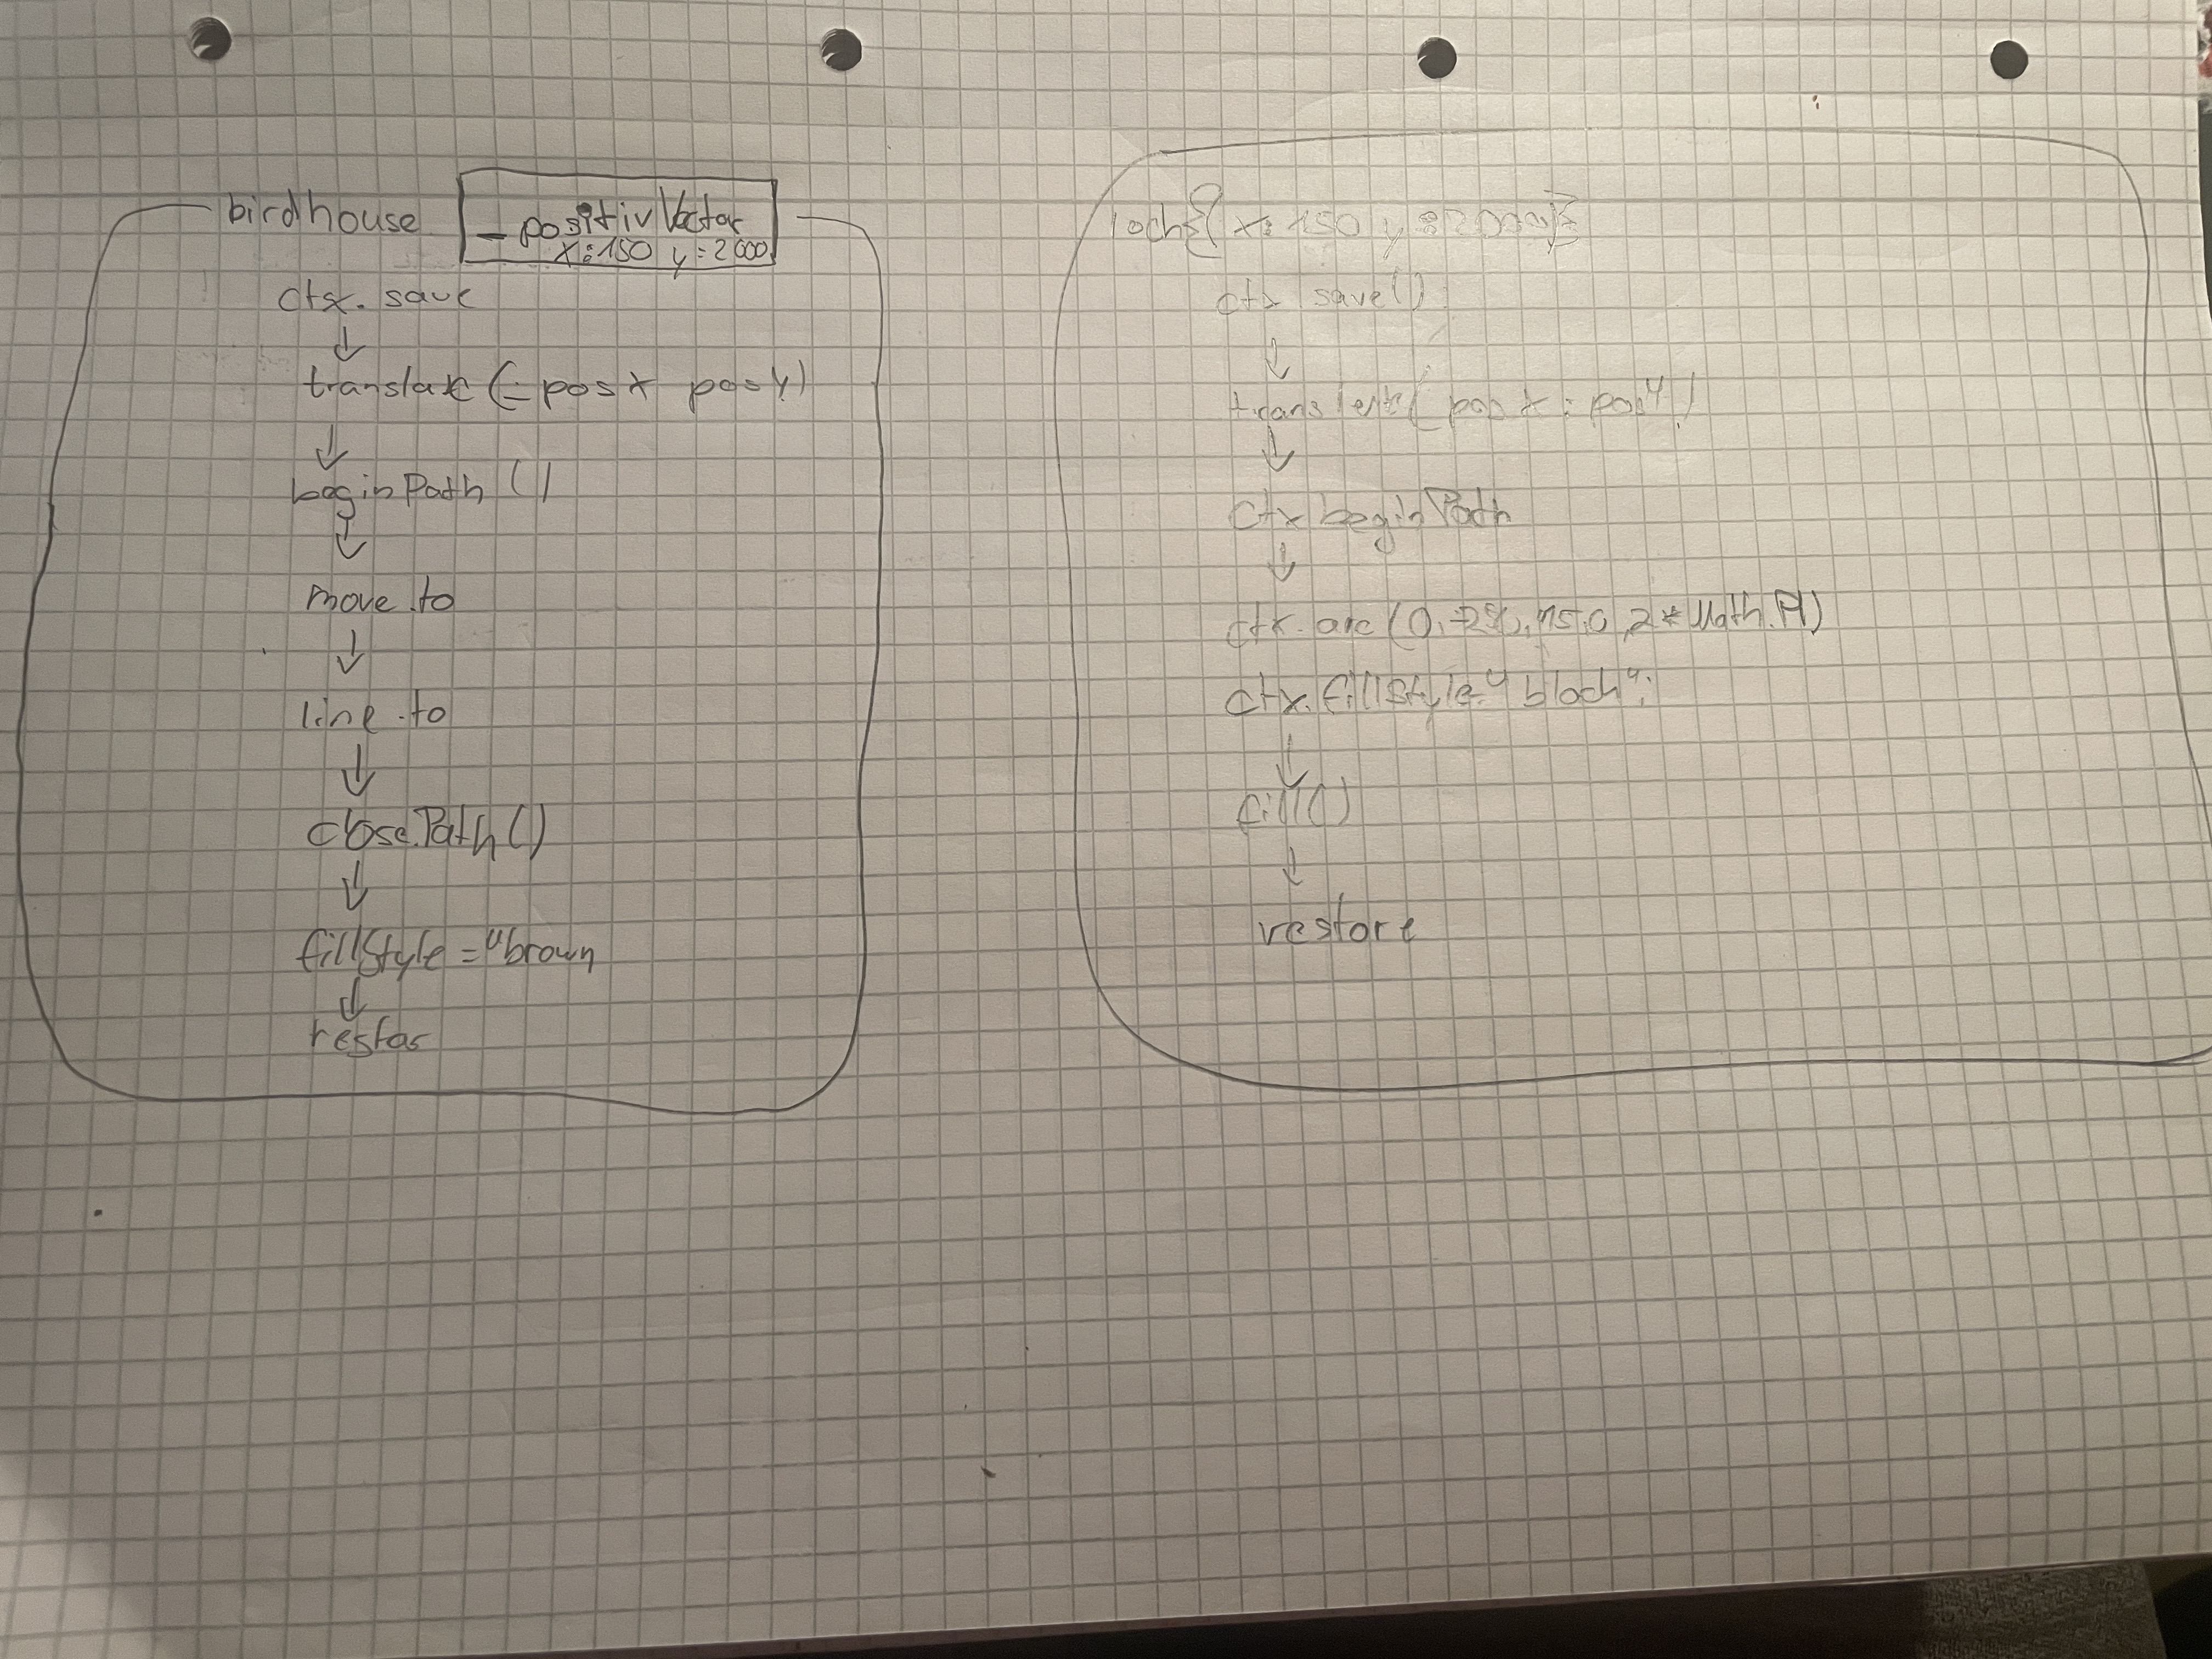 birdhouse
_ positiv Vector
x:150 y:2000
ctx. save
↓
translate (_posX posY)
↓
beginPath ()
↓
move.to
↓
line.to
↓
close.Path ()
↓
fillStyle = "brown
↓
restor
loch{( x: 150 y:2000)}
ctx save()
↓
translate( posX : posY)
↓
ctx beginPath
↓
ctx. arc (0, 15,0 ,2 * Math.PI)
ctx. fillStyle "black";
↓
fill()
↓
restore